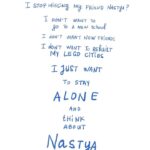 I STOP MISSING MY FRIEND NASTYA?
I DON'T WANT TO
GO TO A NEW SCHOOL
I DON'T WANT NEW FRIENDS
I DON'T WANT TO REBUILT
MY LEGO CITIES
I JUST WANT
TO STAY
ALONE
AND
THINK
ABOUT
NASTYA